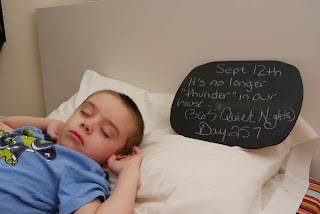 Sept 12th
It's no longer
"thunder" in our
house...
(365 Quiet Nights)
Day 257